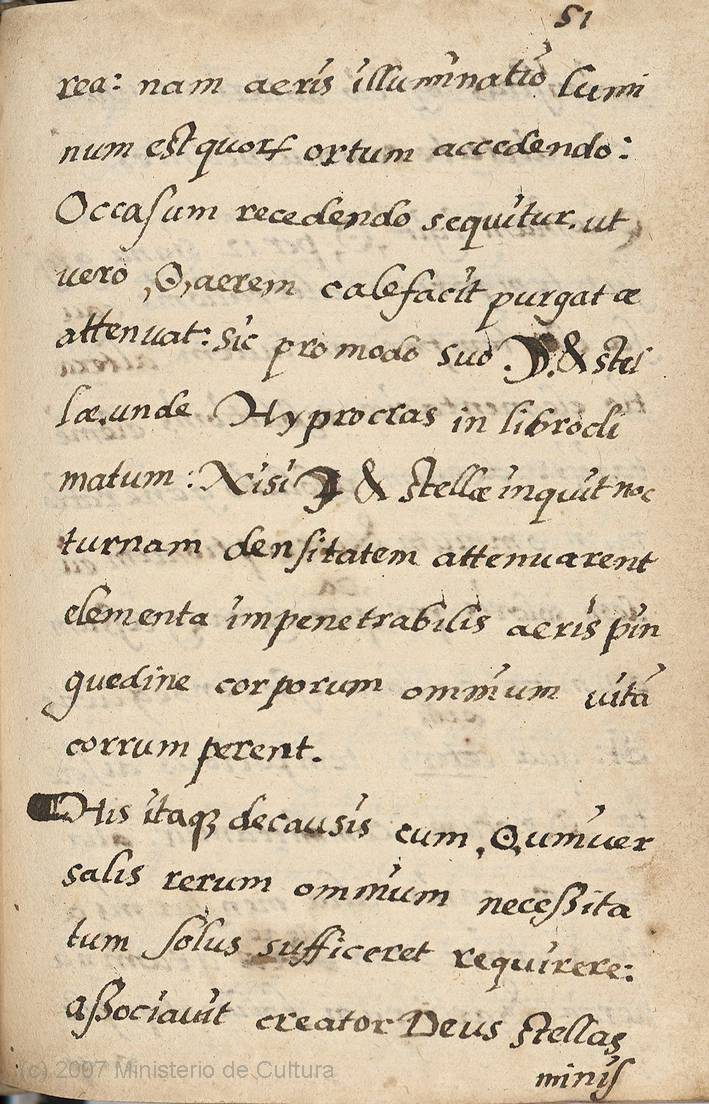 51
rea: nam aeris illuminatiō lumi
num est quorƒ ortum accedendo:
Occaſum recedendo sequitur. ut
vero ,☉, aerem calefacit purgat æ
attenuat: sic pro modo suo .☽. & stel
læ. unde Hyprocras in libro cli
matum: Nisi ☽ & stellæ inquit noc
turnam denſitatem attenuarent
elementa impenetrabilis aeris pin
guedine corporum omnium vitā
corrumperent.
His itaqꝫ de causis cum ,☉, univer
salis rerum omnium neceßita
tum ſolus sufficeret requirere:
aßociavit creator Deus stellas
miniſ
(c) 2007 Ministerio de Cultura